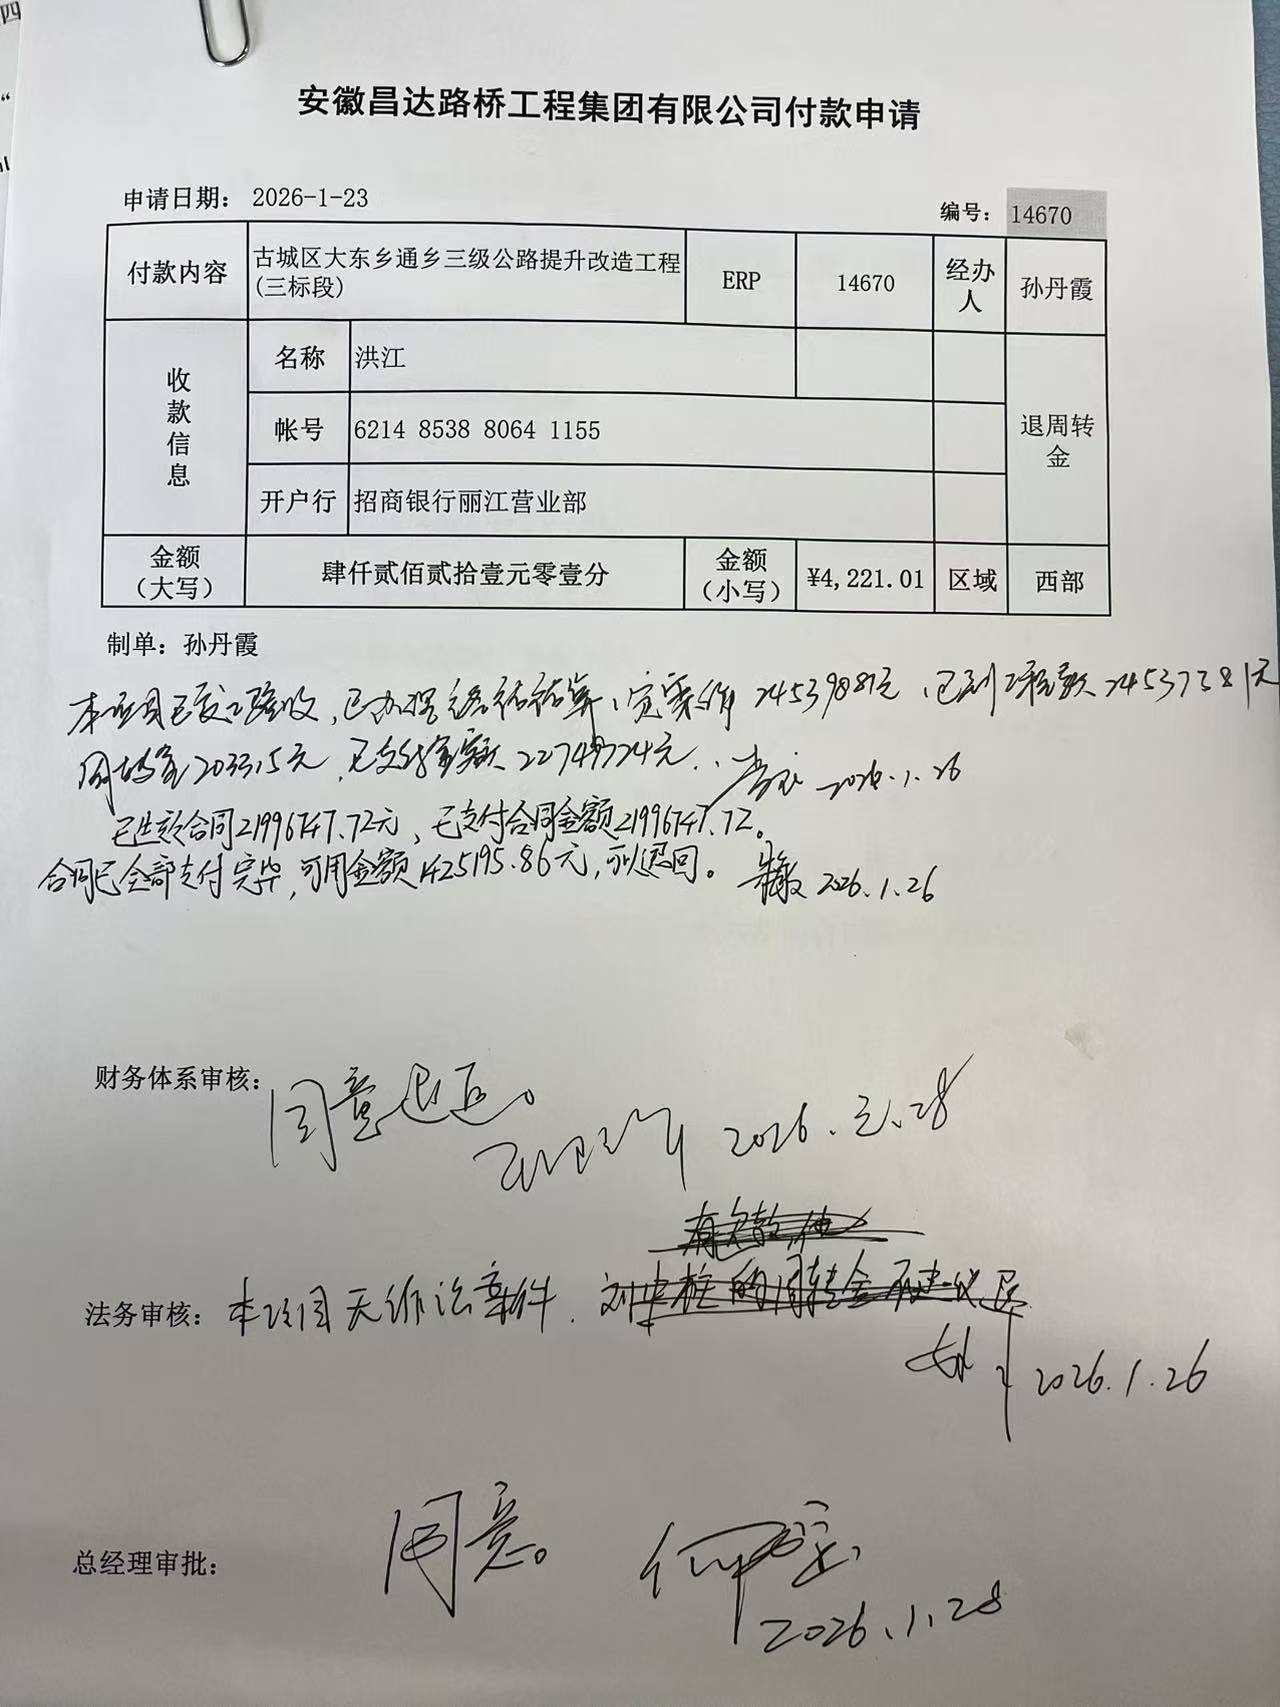 四
安徽昌达路桥工程集团有限公司付款申请
申请日期： 2026-1-23
编号： 14670
付款内容 古城区大东乡通乡三级公路提升改造工程(三标段) ERP 14670 经办人 孙丹霞
收款信息 名称 洪江
帐号 6214 8538 8064 1155 退周转金
开户行 招商银行丽江营业部
金额（大写） 肆仟贰佰贰拾壹元零壹分 金额（小写） ¥4,221.01 区域 西部
制单：孙丹霞
本项目已交工验收，已办理结算，定案价24539881元，已到工程款24537381元
周转金203315元，已支付金额22749724元 2026.1.26
已生效合同21996747.72元，已支付合同金额21996747.72。
合同已全部支付完毕，可用金额1425195.86元，可以退回。 2026.1.26
财务体系审核： 同意退还。
2026.元.28
法务审核：本项目无诉讼案件.
2026.1.26
总经理审批： 同意。
2026.1.28